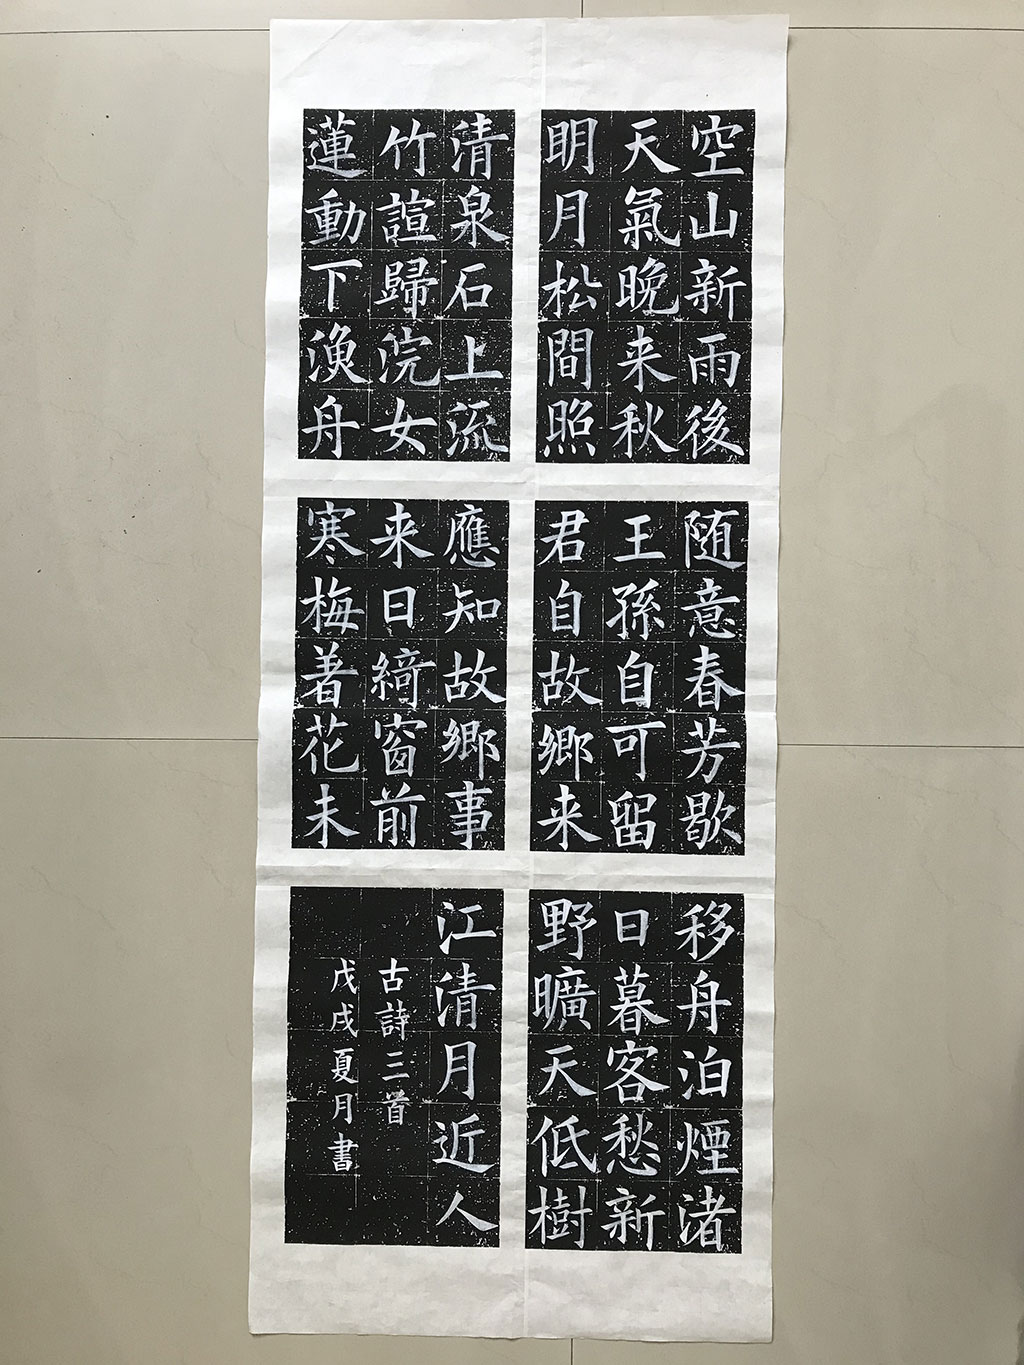 空山新雨後
天氣晚来秋
明月松間照
清泉石上流
竹諠歸浣女
蓮動下漁舟
随意春芳歇
王孫自可留
君自故鄉来
應知故鄉事
来日綺窗前
寒梅着花未
移舟泊煙渚
日暮客愁新
野曠天低樹
江清月近人
古詩三首
戊戌夏月書